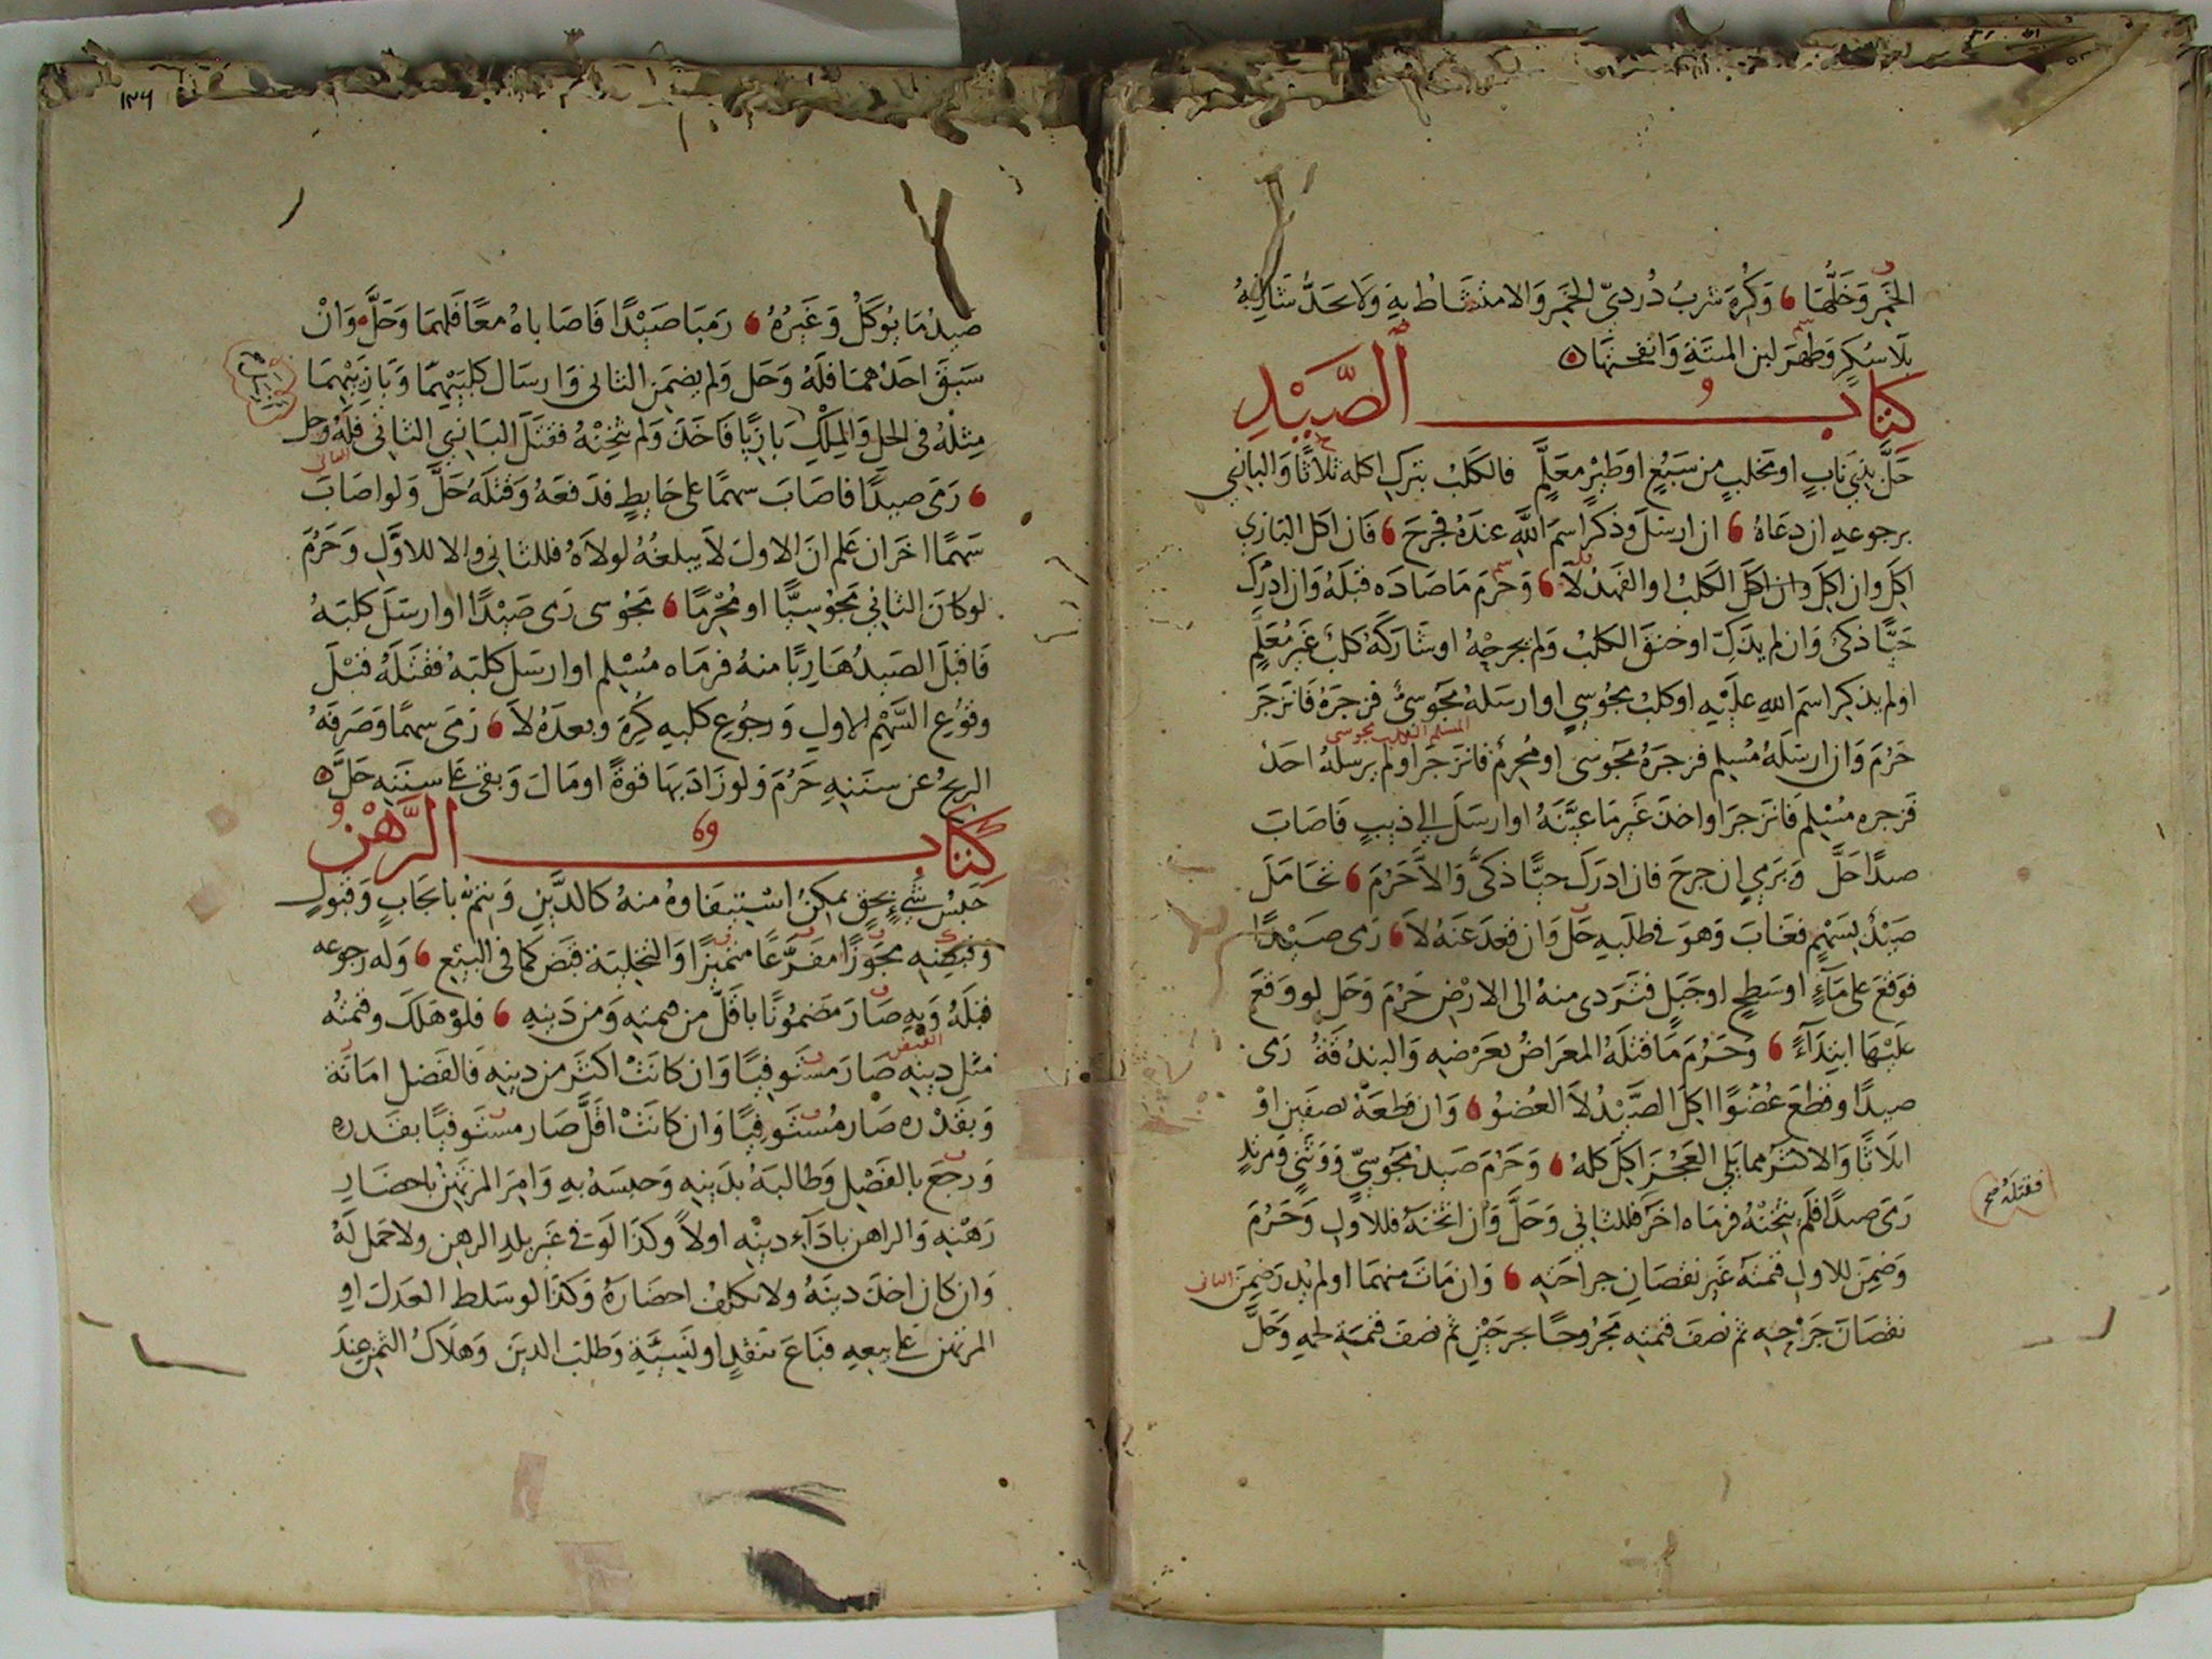 الخمر وخلها وكره شرب دردي الخمر والامتشاط به ولا يحد شاربه
بلا سكر وطهر لبن الميتة وانفحتها
كتاب الصيد
حل بذي ناب او مخلب من سبع او طير معلم فالكلب بترك اكله ثلاثا والبازي
برجوعه ان دعاه ان ارسل وذكر اسم الله عنده فجرح فان اكل البازي
اكل وان اكل وان اكل الكلب او الفهد لا وحرم ما صاده قبله وان ادرك
حيا ذكي وان لم يذك او خنق الكلب ولم يجرحه او شاركه كلب غير معلم
او لم يذكر اسم الله عليه او كلب مجوسي او ارسله مجوسي فزجره فانزجر
حرم وان ارسله مسلم فزجره مجوسي او محرم فانزجر او لم يرسله احد
فزجره مسلم فانزجر او اخذ غير ما عينه او ارسل الى ذيب فاصاب
صيدا حل وبرمي ان جرح فان ادرك حيا ذكى والا حرم تحامل
صيد بسهم فغاب وهو في طلبه حل وان قعد عنه لا رمى صيدا
فوقع على ماء او سطح او جبل فتردى منه الى الارض حرم وحل لو وقع
عليها ابتداء وحرم ما قتله المعراض بعرضه والبندقة رمى
صيدا وقطع عضوا اكل الصيد لا العضو وان قطعه نصفين او
اثلاثا والاكثر مما يلي العجز اكل كله وحرم صيد مجوسي ووثني ومرتد
رمى صيدا فلم يثخنه فرماه اخر فللثاني وحل وان اثخنه فللاول وحرم
فقتله صح
وضمن للاول قيمته غير نقصان جراحته وان مات منهما او لم يدر ضمن الثاني
نقصان جراحته ثم نصف قيمته مجروحا بجرحين ثم نصف قيمة لحمه وحل
١٣٦
صيد ما يوكل وغيره رميا صيدا فاصاباه معا فلهما وحل وان
سبق احدهما فله وحل ولم يضمن الثاني وارسال كلبيهما وبازييهما
مثله في الحل والملك بازيا فاخذ ولم يثخنه فقتل البازي الثاني فله وحل
رمى صيدا فاصاب سهما على حايط فدفعه وقتله حل ولو اصاب
سهما اخر ان علم ان الاول لا يبلغه لولاه فللثاني والا للاول وحرم
لو كان الثاني مجوسيا او محرما مجوسي رمى صيدا او ارسل كلبه
فاقبل الصيد هاربا منه فرماه مسلم او ارسل كلبه فقتله قبل
وقوع السهم الاول ورجوع كلبه كره وبعده لا رمى سهما وصرفه
الريح عن سننه حرم ولو زاد بها قوة او مال وبقي على سننه حل
كتاب الرهن
حبس شيء بحق يمكن استيفاوه منه كالدين ويتم بايجاب وقبول
وقبضه محوزا مفرغا متميزا والتخلية قبض كما في البيع وله رجوعه
قبله وبه صار مضمونا باقل من قيمته ومن دينه فلو هلك وقيمته
مثل دينه صار مستوفيا وان كانت اكثر من دينه فالفضل امانة
وبقدره صار مستوفيا وان كانت اقل صار مستوفيا بقدره
ورجع بالفضل وطالبه بدينه وحبسه به وامر المرتهن باحضار
رهنه والراهن باداء دينه اولا وكذا لو في غير بلد الرهن ولا حمل له
وان كان اخذ دينه ولا تكلف احضاره وكذا لو سلط العدل او
المرتهن على بيعه فباع بنقد او نسيئة وطلب الدين وهلاك الثمن عند